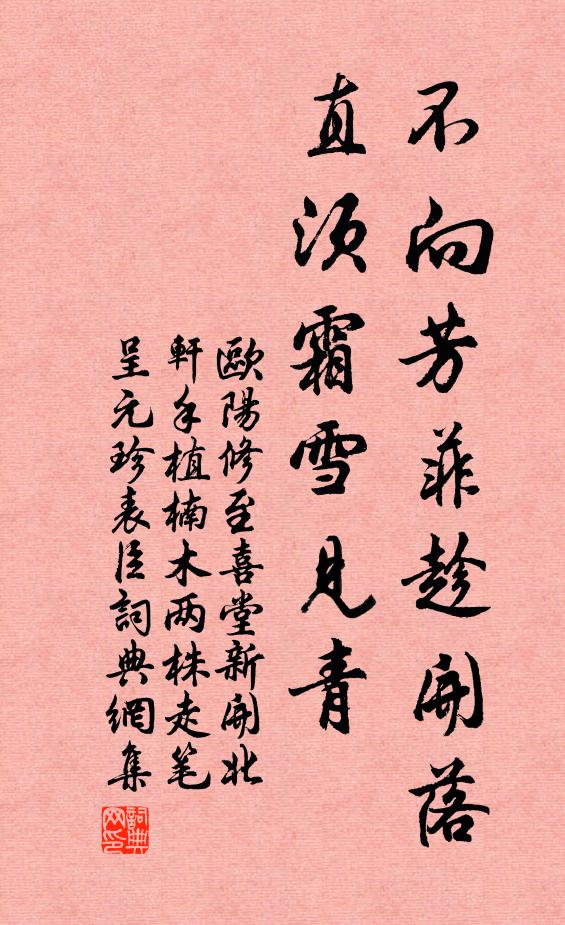 不向芳菲趁開落
直須霜雪見青
歐陽修至喜堂新開北
軒手植楠木两株走笔
呈元珍表臣詞典網集
詞典
网印